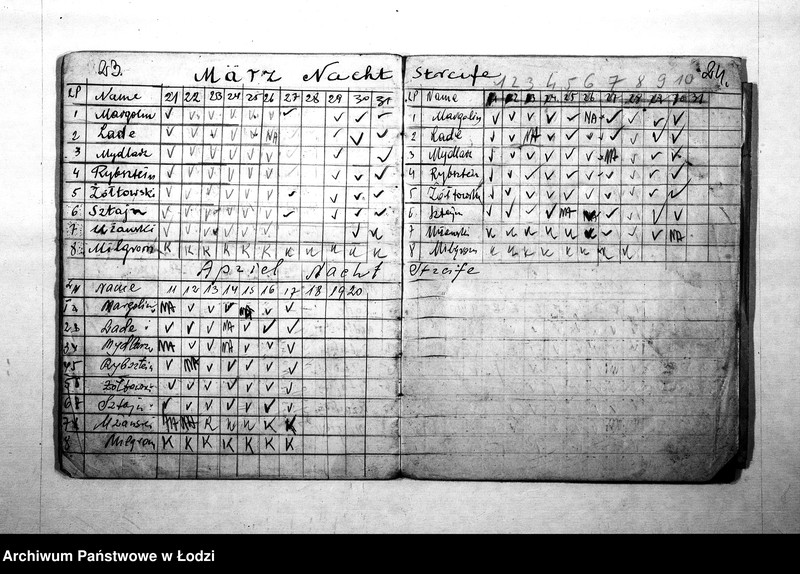 23.
März Nacht Streife
LP Name 21 22 23 24 25 26 27 28 29 30 31
1 Margolin ✓ ✓ ✓ ✓ ✓ ✓ ✓ ✓ ✓ ✓
2 Lade ✓ ✓ ✓ ✓ ✓ NA ✓ ✓ ✓
3 Mydlarz ✓ ✓ ✓ ✓ ✓ ✓ ✓ ✓
4 Rybsztein ✓ ✓ ✓ ✓ ✓ ✓ ✓ ✓ ✓
5 Żółtowski ✓ ✓ ✓ ✓ ✓ ✓ ✓ ✓ ✓ ✓
6 Sztajn ✓ ✓ ✓ ✓ ✓ ✓ ✓ ✓ ✓ ✓
7 Mżawski ✓ ✓ ✓ ✓ ✓ ✓
8 Milgrom K K K K K K K K K K K
April Nacht Streife
LN Name 11 12 13 14 15 16 17 18 19 20
Margolin NA ✓ ✓ ✓ NA ✓ ✓
Lade ✓ ✓ ✓ NA ✓ ✓ ✓
Mydlarz NA ✓ ✓ NA ✓ ✓ ✓
Rybsztein ✓ NA ✓ ✓ ✓ ✓ ✓
Żółtowski ✓ ✓ ✓ ✓ ✓ ✓ ✓
Sztajn ✓ ✓ ✓ ✓ ✓ ✓ ✓
Mżawski NA NA K K K K K
8 Milgrom K K K K K K K
24.
1 2 3 4 5 6 7 8 9 10
LP Name
1 Margolin ✓ ✓ ✓ ✓ ✓ NA ✓ ✓ ✓ ✓
2 Lade ✓ ✓ NA ✓ ✓ ✓ ✓ ✓ ✓ ✓
3 Mydlarz ✓ ✓ ✓ ✓ ✓ ✓ NA ✓ ✓ ✓
4 Rybsztein ✓ ✓ ✓ ✓ ✓ ✓ ✓ ✓ ✓ ✓
5 Żółtowski ✓ ✓ ✓ ✓ ✓ ✓ ✓ ✓ ✓ ✓
6 Sztajn ✓ ✓ ✓ ✓ NA ✓ ✓ ✓ ✓
7 Mżawski K K K K K K K ✓ ✓ NA
8 Milgrom K K K K K K K K
Archiwum Państwowe w Łodzi